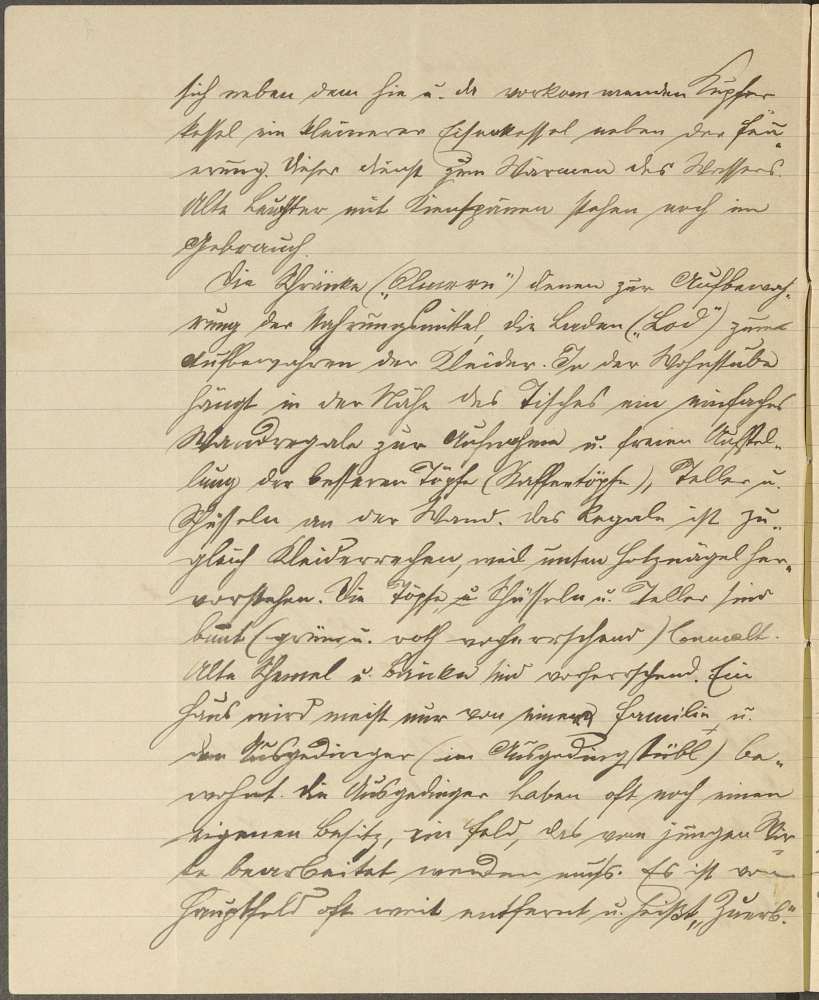 sich neben dem hie u. da vorkommenden Kupfer
kessel ein kleinerer Eisenkessel neben der Feu„
erung. Dieser dient zum Wärmen des Wassers.
Alte Leuchter mit Kienspänen stehen noch im
Gebrauch.
Die Schränke („Olmern“) dienen zur Aufbewah„
rung der Nahrungsmittel, die Laden („Lod“) zum
Aufbewahren der Kleider. In der Wohnstube
hängt in der Nähe des Tisches ein einfaches
Wandregale zur Aufnahme u. freien Aufstel„
lung der besseren Töpfe (Kaffeetöpfe), Teller u.
Schüsseln an der Wand. Das Regale ist zu„
gleich Kleiderrechen, weil unten Holznägel her„
vorstehen. Die Töpfe, u Schüsseln u. Teller sind
bunt (grün u. roth vorherrschend) bemalt.
Alte Schemel u. Bänke sind vorherrschend. Ein
Haus wird meist nur von einer Familie u.
den Ausgedinger (im Ausgedingstübl) be„
wohnt. Die Ausgedinger haben oft noch einen
eigenen Besitz, ein Feld, das vom jungen Wir
te bearbeitet werden muß. Es ist vom
Hauptfeld oft weit entfernt u. heißt „Zuerb.“